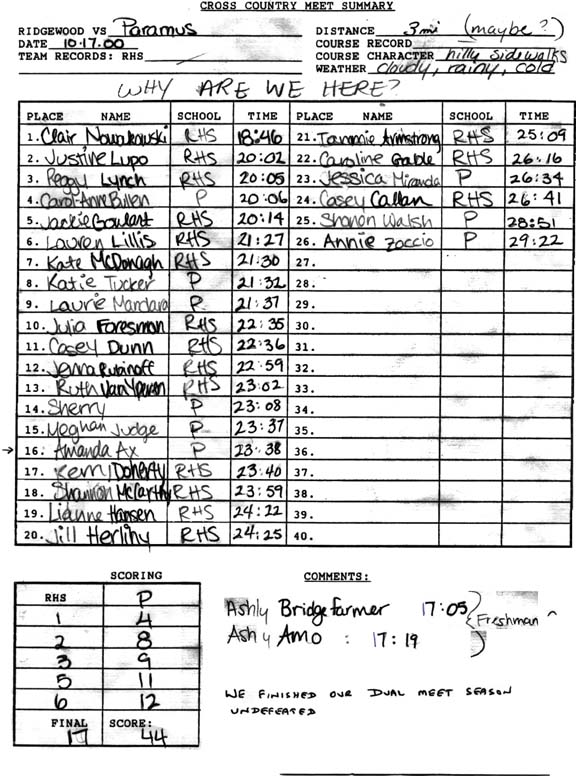 CROSS COUNTRY MEET SUMMARY
RIDGEWOOD VS Paramus DISTANCE 3mi (maybe?)
DATE 10.17.00 COURSE RECORD
TEAM RECORDS: RHS COURSE CHARACTER hilly sidewalks
WEATHER cloudy, rainy, cold
WHY ARE WE HERE?
PLACE NAME SCHOOL TIME PLACE NAME SCHOOL TIME
1. Clair Nowakowski RHS 18:46 21. Tammie Armstrong RHS 25:09
2. Justine Lupo RHS 20:02 22. Caroline Gable RHS 26:16
3. Peggy Lynch RHS 20:05 23. Jessica Miranda P 26:34
4. Carol-Anne Billen P 20:06 24. Casey Callan RHS 26:41
5. Jackie Goulart RHS 20:14 25. Shanon Walsh P 28:51
6. Lauren Lillis RHS 21:27 26. Annie Zoccio P 29:22
7. Kate McDonagh RHS 21:30 27.
8. Katie Tucker P 21:32 28.
9. Laurie P 21:37 29.
10. Julia Foresman RHS 22:35 30.
11. Casey Dunn RHS 22:36 31.
12. Jenna Rubinoff RHS 22:59 32.
13. Ruth RHS 23:02 33.
14. Sherry P 23:08 34.
15. Meghan Judge P 23:37 35.
→ 16. Amanda Ax P 23:38 36.
17. Kerri Doherty RHS 23:40 37.
18. Shannon McCarthy RHS 23:59 38.
19. Lianne Hansen RHS 24:22 39.
20. Jill Herlihy RHS 24:25 40.
SCORING COMMENTS:
RHS P
1 4
2 8
3 9
5 11
6 12
FINAL SCORE:
17 44
Ashly Bridgefarmer 17:05
Freshman
Ashly Amo : 17:19
WE FINISHED OUR DUAL MEET SEASON
UNDEFEATED